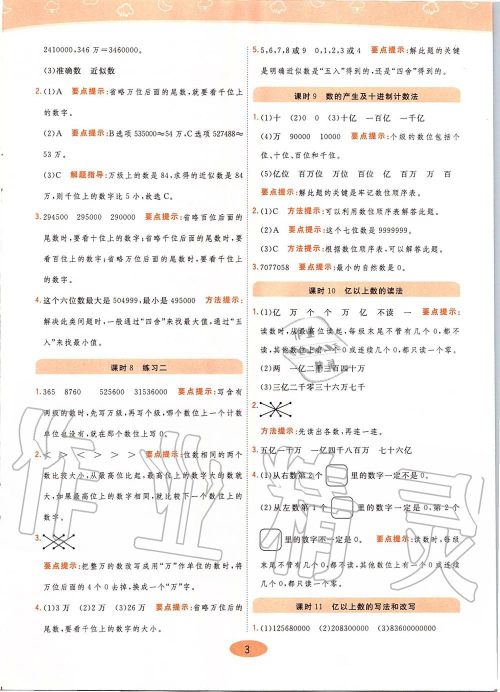 2410000,346 万=3460000.
(3)准确数 近似数
2.(1)A 要点提示:省略万位后面的尾数,就要看千位上
的数字。
(2)A 要点提示:B选项 535000≈54 万,C选项 527488≈
53 万。
(3)C 解题指导:万级上的数是 84,求得的近似数是 84
万,则千位上的数字比 5 小,故选 C。
3.294500 295000 290000 要点提示:省略百位后面的
尾数时,要看十位上的数字;省略千位后面的尾数时,要
看百位上的数字;省略万位后面的尾数时,要看千位上
的数字。
4.这个六位数最大是 504999,最小是 495000 方法提示:
解决此类问题时,一般通过“四舍”来找最大值,通过“五
入”来找最小值。
课时 8 练习二
1.365 8760 525600 31536000 要点提示:写含有
两级的数时,先写万级,再写个级,哪个数位上一个计数
单位也没有,就在那个数位上写 0。
2.< > < > > > 要点提示:位数相同的两个
数比较大小,从最高位比起,最高位上的数字大的数就
大,如果最高位上的数字相同,就比较下一个数位上的
数字。
3.
要点提示:把整万的数改写成用“万”作单位的数时,将
万位后面的 4 个 0 去掉,换成一个“万”字。
4.(1)3 万 (2)2 万 (3)26 万 要点提示:省略万位后的
尾数时,要看千位上的数字的大小。
5.5,6,7,8 或 9 0,1,2,3 或 4 要点提示:解此题的关键
是明确近似数是“五入”得到的,还是“四舍”得到的。
课时 9 数的产生及十进制计数法
1.(1)十 (2)0 0 (3)十亿 一百亿 一千亿
(4)万 90000 10000 要点提示:个级的数位包括个
位、十位、百位和千位。
(5)亿位 百万位 万位 百位 亿 百万 万 百
要点提示:解此题的关键是牢记数位顺序表。
2.(1)C 方法提示:可以利用数位顺序表解答。
(2)A 要点提示:这个七位数是 9999999。
(3)C 方法提示:根据数位顺序表,可以解答此题。
3.7077058 要点提示:最小的自然数是 0。
课时 10 亿以上数的读法
1.(1)亿 万 个 个 万 亿 不读 一 要点提示:
读数时,从最高位读起,每级末尾不管有几个 0,都不
读,其他数位有一个 0 或连续几个 0,都只读一个零。
(2)两 一亿二千三百四十万
(3)三亿二千零三十六万七千
2.
方法提示:先读出各数,再连一连。
3.五亿一千万 一亿四千八百万 七十六亿
4.(1)从右数第 2 个 里的数字一定不是 0。
(2)从左数第 1 个 里的数字一定是 0,第 2 个
里的数字不一定是 0。 要点提示:读数时,每级
末尾不管有几个 0,都不读,其他数位有一个 0 或连续
几个 0,都只读一个零。
课时 11 亿以上数的写法和改写
1.(1)125680000 (2)208300000 (3)83600000000
3
作业精灵